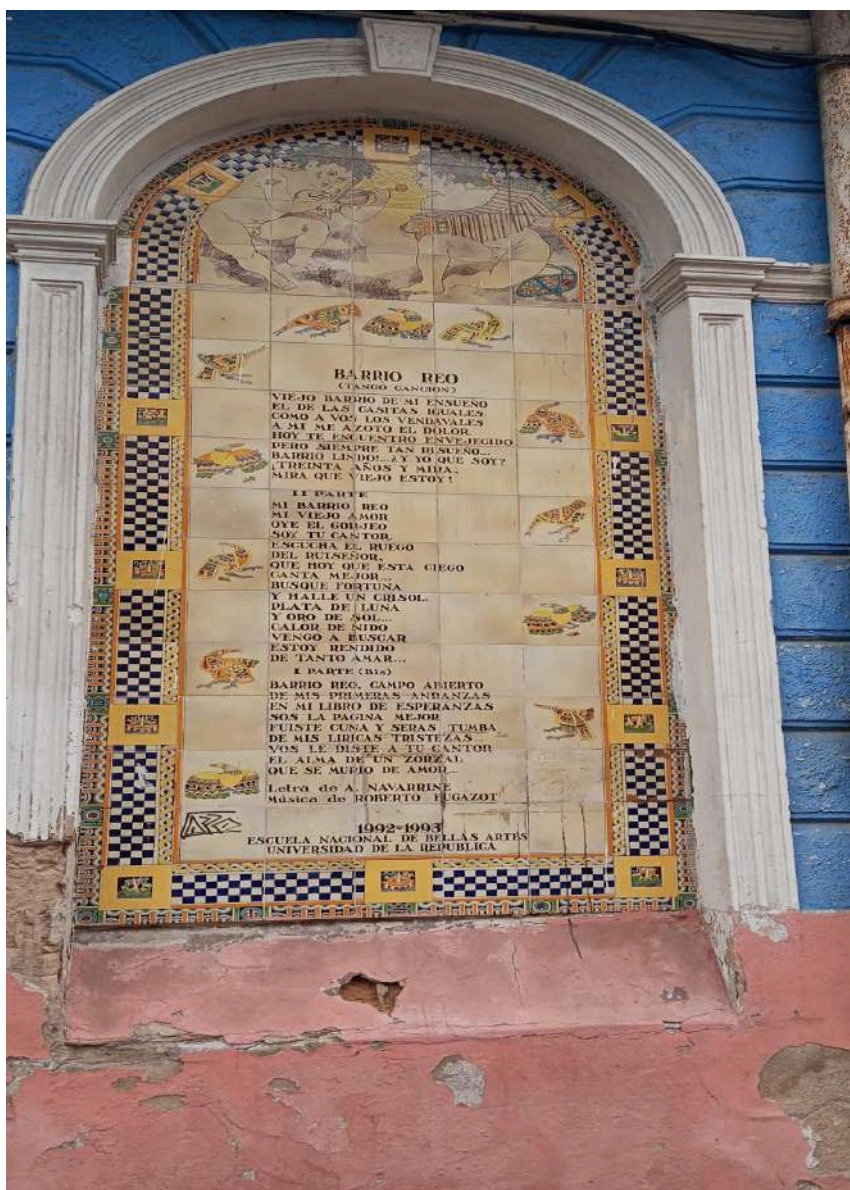 BARRIO REO
(TANGO CANCION)
VIEJO BARRIO DE MI ENSUEÑO
EL DE LAS CASITAS IGUALES
COMO A VOS LOS VENDAVALES
A MI ME AZOTO EL DOLOR
HOY TE ENCUENTRO ENVEJECIDO
PERO SIEMPRE TAN RISUEÑO...
BARRIO LINDO!...¿Y YO QUE SOY?
¡TREINTA AÑOS Y MIRA,
MIRA QUE VIEJO ESTOY!
II PARTE
MI BARRIO REO
MI VIEJO AMOR
OYE EL GORJEO
SOY TU CANTOR.
ESCUCHA EL RUEGO
DEL RUISEÑOR,
QUE HOY QUE ESTA CIEGO
CANTA MEJOR...
BUSQUE FORTUNA
Y HALLE UN CRISOL.
PLATA DE LUNA
Y ORO DE SOL...
CALOR DE NIDO
VENGO A BUSCAR
ESTOY RENDIDO
DE TANTO AMAR...
I PARTE (Bis)
BARRIO REO, CAMPO ABIERTO
DE MIS PRIMERAS ANDANZAS
EN MI LIBRO DE ESPERANZAS
SOS LA PAGINA MEJOR
FUISTE CUNA Y SERAS TUMBA
DE MIS LIRICAS TRISTEZAS...
VOS LE DISTE A TU CANTOR
EL ALMA DE UN ZORZAL
QUE SE MURIO DE AMOR...
Letra de A. NAVARRINE
Música de ROBERTO FUGAZOT
1992-1993
ESCUELA NACIONAL DE BELLAS ARTES
UNIVERSIDAD DE LA REPUBLICA